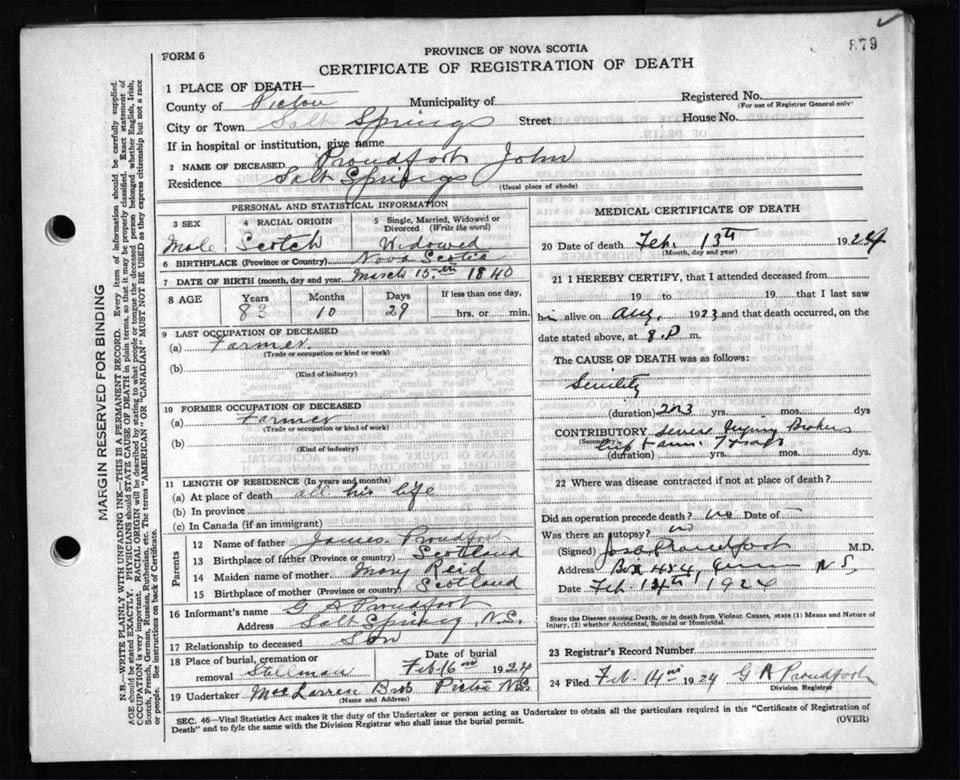 879
FORM 6
PROVINCE OF NOVA SCOTIA
CERTIFICATE OF REGISTRATION OF DEATH
MARGIN RESERVED FOR BINDING
N.B.—WRITE PLAINLY WITH UNFADING INK—THIS IS A PERMANENT RECORD. Every item of information should be carefully supplied.
AGE should be stated EXACTLY. PHYSICIANS should STATE CAUSE OF DEATH in plain terms, so that it may be properly classified. Exact statement of
OCCUPATION is very important. RACIAL ORIGIN will be described by stating to what people or tongue the deceased person belonged whether English, Irish,
Scotch, French, German, Russian, Ruthenian, etc. The terms "AMERICAN" OR "CANADIAN" MUST NOT BE USED as they express citizenship but not a race
or people. See instructions on back of Certificate.
1 PLACE OF DEATH—
County of Pictou Municipality of Registered No.
(For use of Registrar General only)
City or Town Salt Springs Street House No.
If in hospital or institution, give name
2 NAME OF DECEASED Proudfoot John
Residence Salt Springs
(Usual place of abode)
PERSONAL AND STATISTICAL INFORMATION
3 SEX 4 RACIAL ORIGIN 5 Single, Married, Widowed or
Divorced (Write the word)
Male Scotch Widowed
6 BIRTHPLACE (Province or Country) Nova Scotia
7 DATE OF BIRTH (month, day and year) March 15th 1840
8 AGE Years Months Days If less than one day,
83 10 29 hrs. or min.
9 LAST OCCUPATION OF DECEASED
(a) Farmer
(Trade or occupation or kind or work)
(b)
(Kind of industry)
10 FORMER OCCUPATION OF DECEASED
(a) Farmer
(Trade or occupation or kind or work)
(b)
(Kind of industry)
11 LENGTH OF RESIDENCE (In years and months)
(a) At place of death all his life
(b) In province
(c) In Canada (if an immigrant)
Parents
12 Name of father James Proudfoot
13 Birthplace of father (Province or country) Scotland
14 Maiden name of mother Mary Reid
15 Birthplace of mother (Province or country) Scotland
16 Informant's name G A Proudfoot
Address Salt Springs N.S.
17 Relationship to deceased Son
18 Place of burial, cremation or Date of burial
removal Stillman Feb 16th 1924
19 Undertaker MacLarren Bros Pictou N.S.
(Name and Address)
MEDICAL CERTIFICATE OF DEATH
20 Date of death Feb. 13th 1924
(Month, day and year)
21 I HEREBY CERTIFY, that I attended deceased from
19 to 19 that I last saw
him alive on Aug. 1923 and that death occurred, on the
date stated above, at 8 P m.
The CAUSE OF DEATH was as follows:
Senility
(duration) 2 or 3 yrs. mos. dys
CONTRIBUTORY severe injury Broken
(Secondary) hip
(duration) yrs. mos. dys.
22 Where was disease contracted if not at place of death?
Did an operation precede death? no Date of
Was there an autopsy? no
(Signed) Proudfoot M.D.
Address Box 454, N S,
Date Feb 14th, 1924
State the Disease causing Death, or in death from Violent Causes, state (1) Means and Nature of
Injury, (2) whether Accidental, Suicidal or Homicidal.
23 Registrar's Record Number
24 Filed Feb. 14th 1924 G A Proudfoot
Division Registrar
SEC. 46—Vital Statistics Act makes it the duty of the Undertaker or person acting as Undertaker to obtain all the particulars required in the "Certificate of Registration of
Death" and to fyle the same with the Division Registrar who shall issue the burial permit.
(OVER)